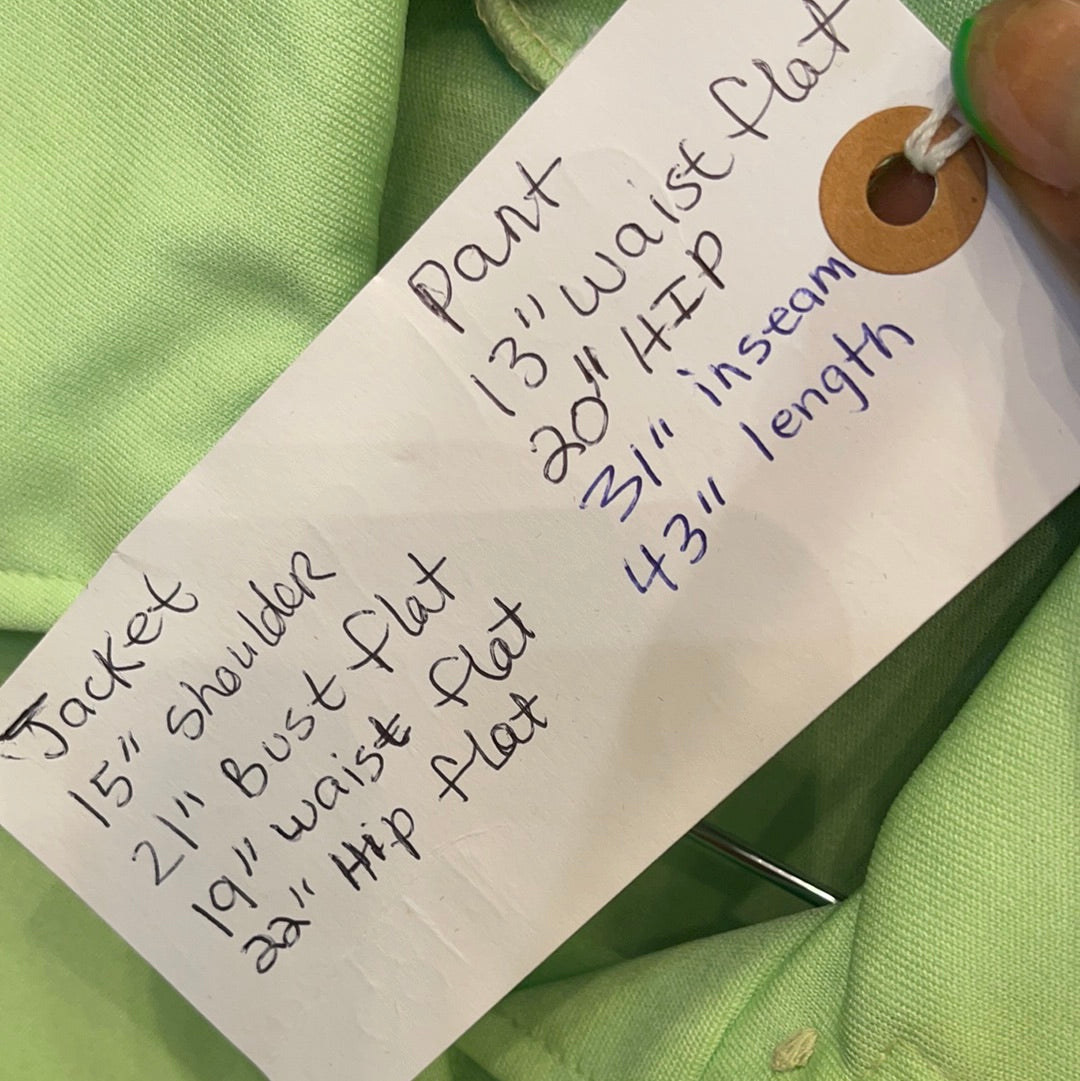 Pant
13" waist flat
20" HIP
31" inseam
43" length
Jacket
15" shoulder
21" Bust flat
19" waist flat
22" Hip flat